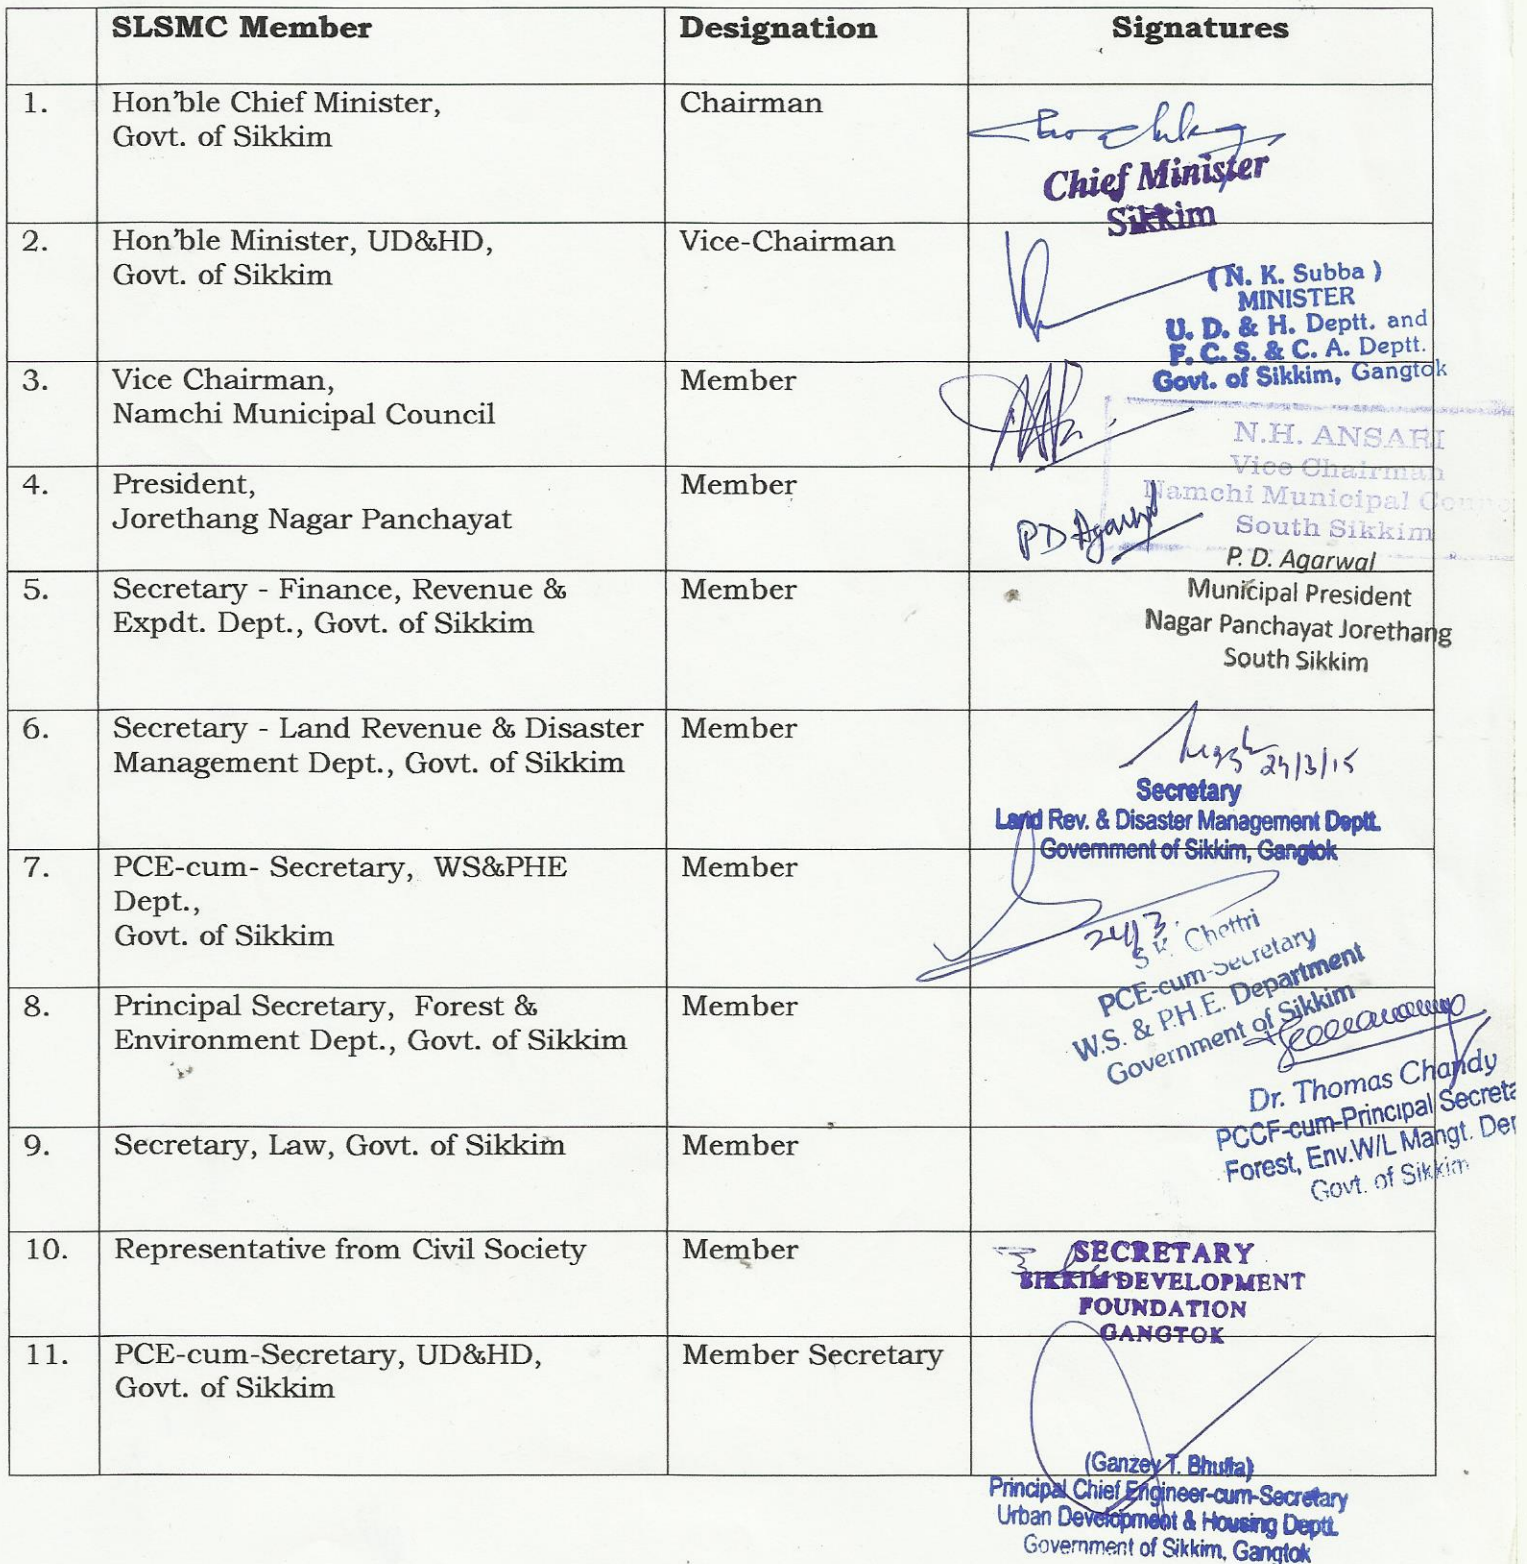 SLSMC Member Designation Signatures
1. Hon'ble Chief Minister, Chairman
Govt. of Sikkim
Chief Minister
Sikkim
2. Hon'ble Minister, UD&HD, Vice-Chairman
Govt. of Sikkim
(N. K. Subba)
MINISTER
U. D. & H. Deptt. and
F. C. S. & C. A. Deptt.
Govt. of Sikkim, Gangtok
3. Vice Chairman, Member
Namchi Municipal Council
N.H. ANSARI
Vice Chairman
Namchi Municipal
South Sikkim
4. President, Member
Jorethang Nagar Panchayat
PD Agarwal
P. D. Agarwal
Municipal President
Nagar Panchayat Jorethang
South Sikkim
5. Secretary - Finance, Revenue & Member
Expdt. Dept., Govt. of Sikkim
6. Secretary - Land Revenue & Disaster Member
Management Dept., Govt. of Sikkim
24/3/15
Secretary
Land Rev. & Disaster Management Deptt.
Government of Sikkim, Gangtok
7. PCE-cum- Secretary, WS&PHE Member
Dept.,
Govt. of Sikkim
24/3
Chettri
PCE-cum-Secretary
W.S. & P.H.E. Department
Government of Sikkim
8. Principal Secretary, Forest & Member
Environment Dept., Govt. of Sikkim
Dr. Thomas Chandy
PCCF-cum-Principal Secreta
Forest, Env.W/L Mangt. Dep
Govt. of Sikkim
9. Secretary, Law, Govt. of Sikkim Member
10. Representative from Civil Society Member
SECRETARY
SIKKIM DEVELOPMENT
FOUNDATION
GANGTOK
11. PCE-cum-Secretary, UD&HD, Member Secretary
Govt. of Sikkim
(Ganzey T. Bhutia)
Principal Chief Engineer-cum-Secretary
Urban Development & Housing Deptt.
Government of Sikkim, Gangtok